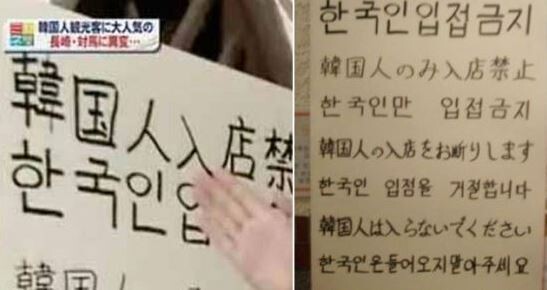 韓国人観光客に大人気の
長崎・対馬に異変…
韓国人入店禁
한국인입
韓国人
한국인입접금지
韓国人のみ入店禁止
한국인만 입접금지
韓国人の入店をお断りします
한국인 입점을 거절합니다
韓国人は入らないでください
한국인은들어오지말아주세요